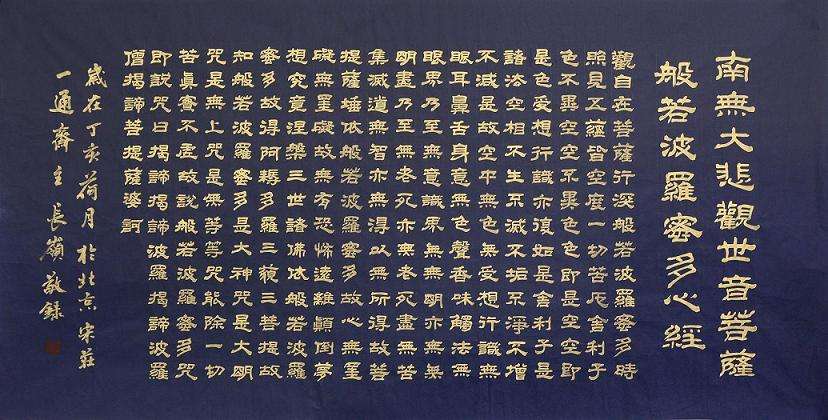 南無大悲觀世音菩薩
般若波羅蜜多心經
觀自在菩薩行深般若波羅蜜多時
照見五蘊皆空度一切苦厄舍利子
色不異空空不異色色即是空空即
是色受想行識亦復如是舍利子是
諸法空相不生不滅不垢不淨不增
不減是故空中無色無受想行識無
眼耳鼻舌身意無色聲香味觸法無
眼界乃至無意識界無無明亦無無
明盡乃至無老死亦無老死盡無苦
集滅道無智亦無得以無所得故菩
提薩埵依般若波羅蜜多故心無罣
礙無罣礙故無有恐怖遠離顛倒夢
想究竟涅槃三世諸佛依般若波羅
蜜多故得阿耨多羅三藐三菩提故
知般若波羅蜜多是大神咒是大明
咒是無上咒是無等等咒能除一切
苦真實不虛故說般若波羅蜜多咒
即說咒曰揭諦揭諦波羅揭諦波羅
僧揭諦菩提薩婆訶
歲在丁亥荷月於北京宋莊
一通齋主長嶺敬錄